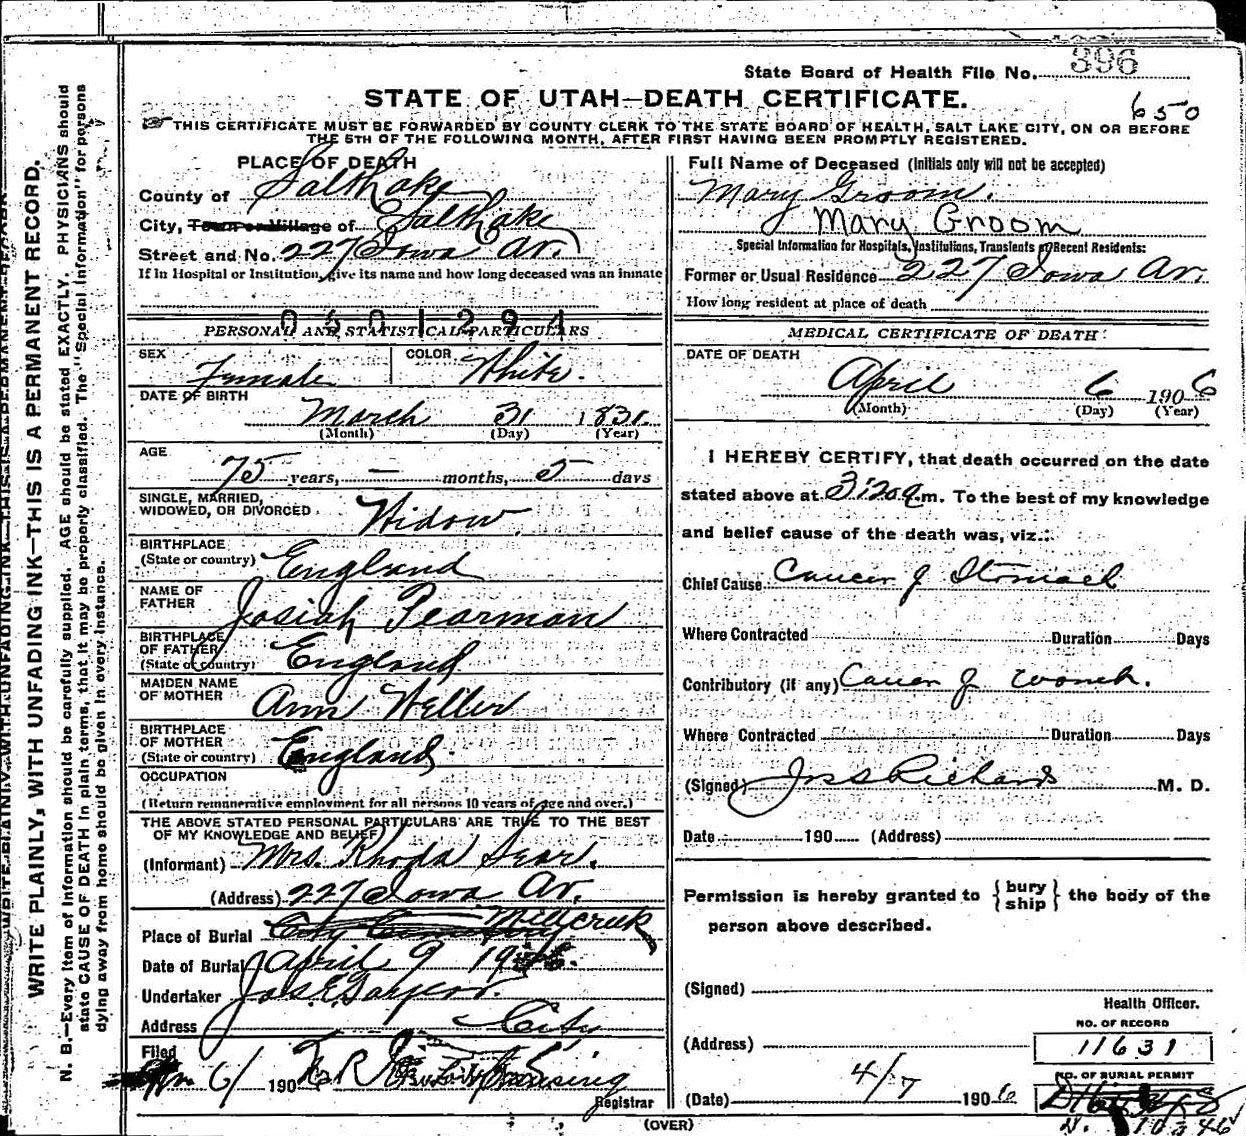 State Board of Health File No. 396
STATE OF UTAH—DEATH CERTIFICATE.
650
THIS CERTIFICATE MUST BE FORWARDED BY COUNTY CLERK TO THE STATE BOARD OF HEALTH, SALT LAKE CITY, ON OR BEFORE
THE 5TH OF THE FOLLOWING MONTH, AFTER FIRST HAVING BEEN PROMPTLY REGISTERED.
WRITE PLAINLY, WITH UNFADING INK—THIS IS A PERMANENT RECORD.
N. B.—Every item of information should be carefully supplied. AGE should be stated EXACTLY. PHYSICIANS should
state CAUSE OF DEATH in plain terms, that it may be properly classified. The "Special Information" for persons
dying away from home should be given in every instance.
PLACE OF DEATH
County of Salt Lake
City, Town or Village of Salt Lake
Street and No. 227 Iowa Av.
If in Hospital or Institution, give its name and how long deceased was an inmate
0601294
PERSONAL AND STATISTICAL PARTICULARS
SEX Female
COLOR White.
DATE OF BIRTH
March 31 1831.
(Month) (Day) (Year)
AGE
75 years, — months, 5 days
SINGLE, MARRIED,
WIDOWED, OR DIVORCED Widow
BIRTHPLACE
(State or country) England
NAME OF
FATHER Josiah Pearman
BIRTHPLACE
OF FATHER
(State or country) England
MAIDEN NAME
OF MOTHER Ann Weller
BIRTHPLACE
OF MOTHER
(State or country) England.
OCCUPATION
(Return remunerative employment for all persons 10 years of age and over.)
THE ABOVE STATED PERSONAL PARTICULARS ARE TRUE TO THE BEST
OF MY KNOWLEDGE AND BELIEF
(Informant) Mrs. Rhoda Sear.
(Address) 227 Iowa Av.
Place of Burial City Cemetery Millcreek
Date of Burial April 9 19
Undertaker Jos. E.
Address City
Filed
6/ 190
Registrar
Full Name of Deceased (Initials only will not be accepted)
Mary Groom.
Mary Groom
Special Information for Hospitals, Institutions, Transients or Recent Residents:
Former or Usual Residence 227 Iowa Av.
How long resident at place of death
MEDICAL CERTIFICATE OF DEATH
DATE OF DEATH
April 6 1906
(Month) (Day) (Year)
I HEREBY CERTIFY, that death occurred on the date
stated above at 3:20 a.m. To the best of my knowledge
and belief cause of the death was, viz.:
Chief Cause Cancer of Stomach
Where Contracted Duration Days
Contributory (if any) Cancer of womb.
Where Contracted Duration Days
(Signed) Jos S Richards M. D.
Date 190 (Address)
Permission is hereby granted to {bury ship} the body of the
person above described.
(Signed)
Health Officer.
NO. OF RECORD
(Address) 11631
NO. OF BURIAL PERMIT
(Date) 4/7 1906
N. 10346
(OVER)